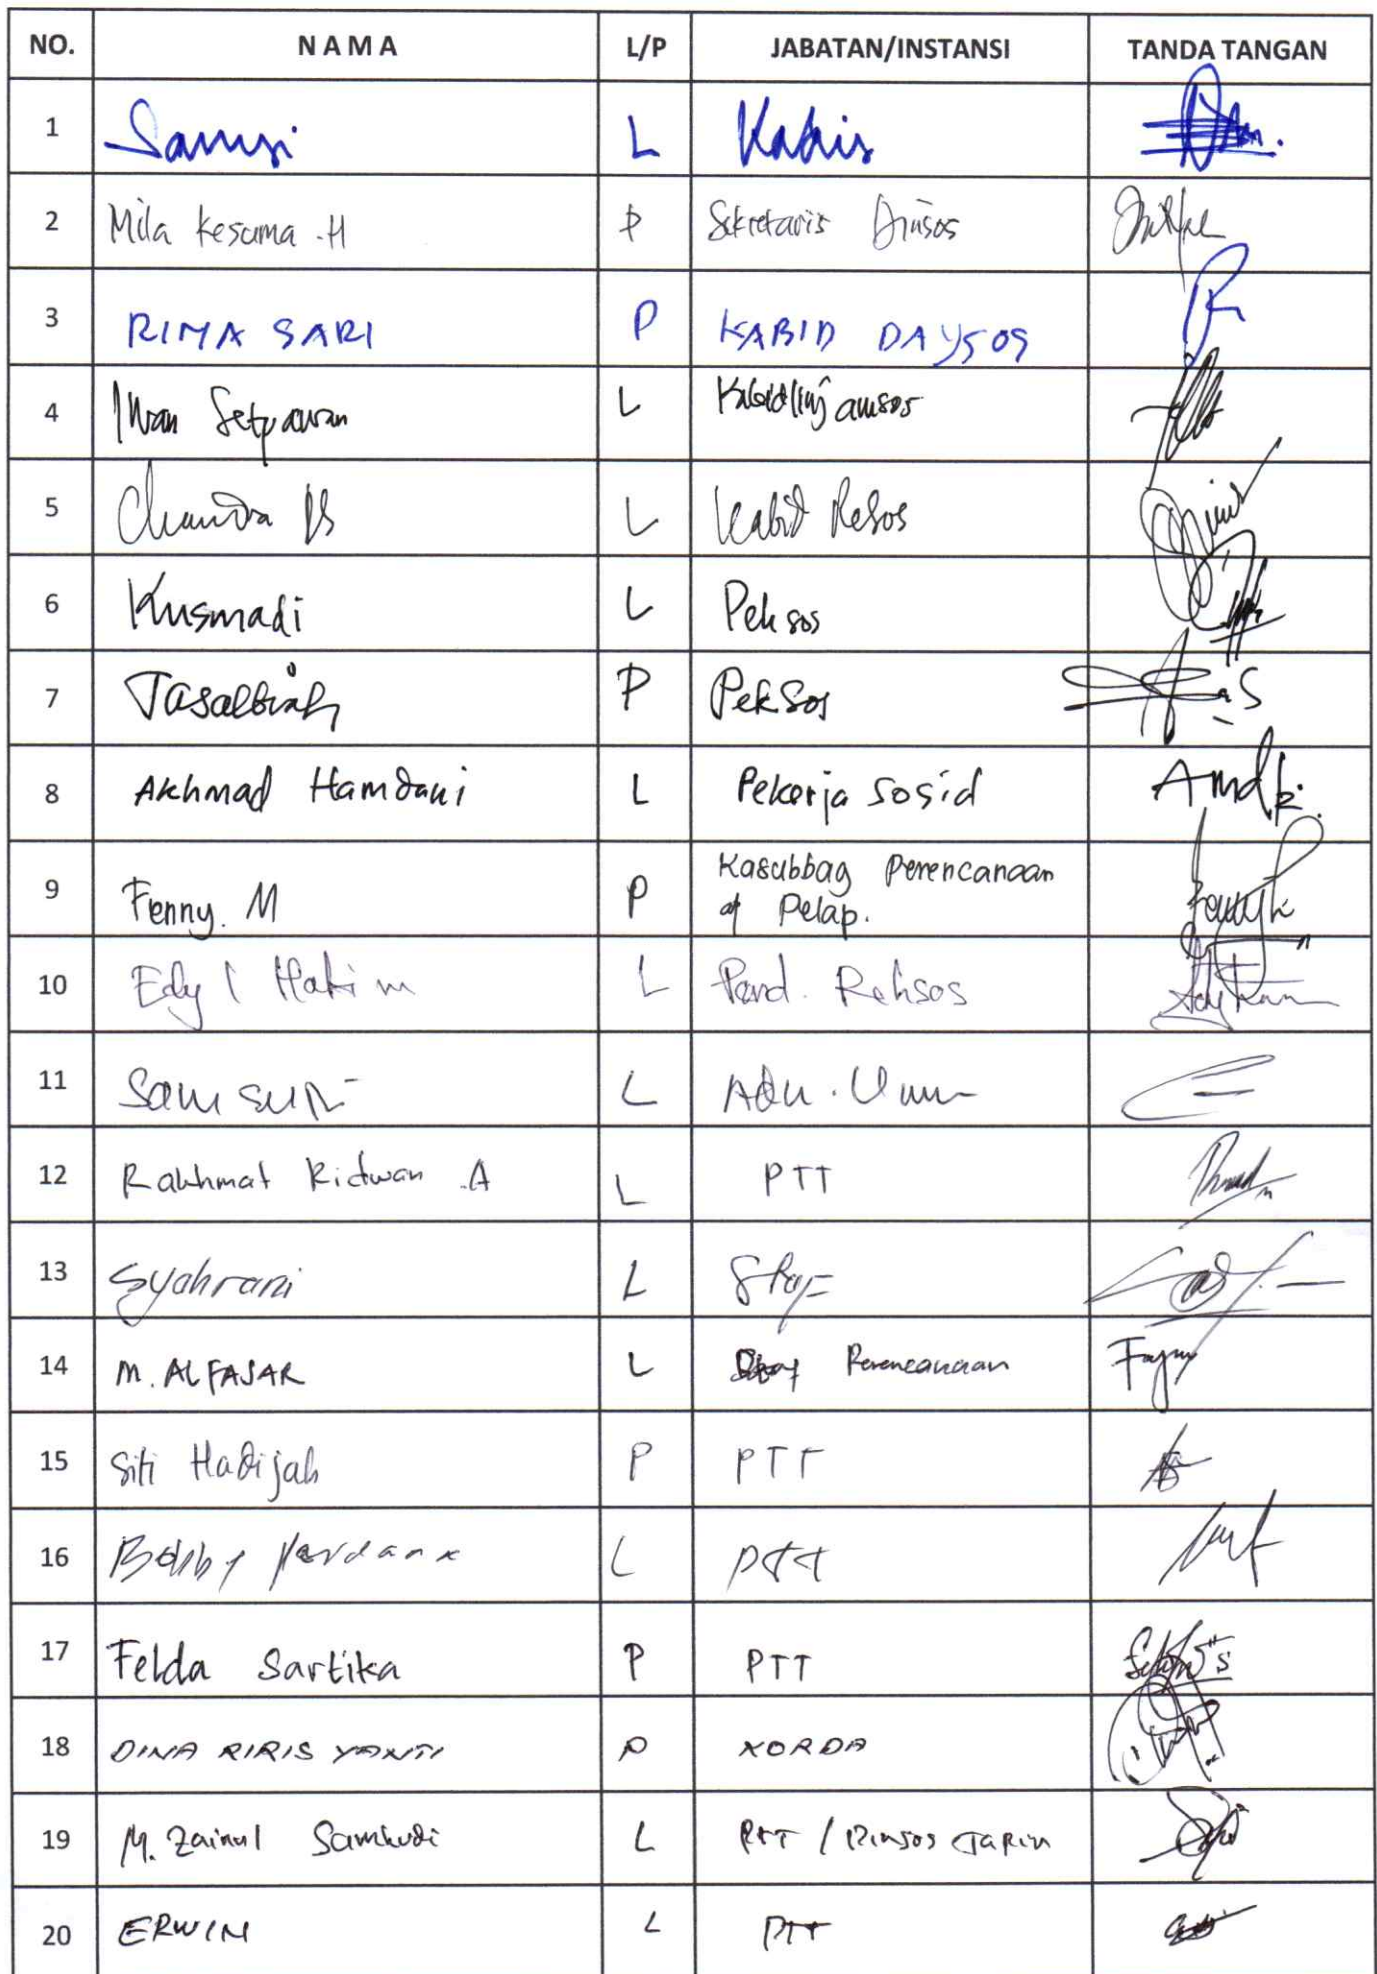 NO. NAMA L/P JABATAN/INSTANSI TANDA TANGAN
1 Samsi L Kadis
2 Mila Kesuma .H P Sekretaris Dinsos
3 RIMA SARI P KABID DAYSOS
4 Iwan Setyawan L Kabid linjamsos
5 Chandra L Kabid Resos
6 Kusmadi L Peksos
7 P PekSos
8 Akhmad Hamdani L Pekerja sosial
9 Fenny. M P Kasubbag Perencanaan
Pelap.
10 Edy L Hakim L Pend. Rehsos
11 Samsuri L Adm. Umum
12 Rakhmat Ridwan .A L PTT
13 Syahrani L Staf
14 M. ALFAJAR L Staf Perencanaan
15 Siti Hadijah P PTT
16 Bobby Perdana L PTT
17 Felda Sartika P PTT
18 DINA RIRIS YANTI P KORDA
19 M. Zainul Samhudi L PTT / Dinsos Tapin
20 ERWIN L PTT